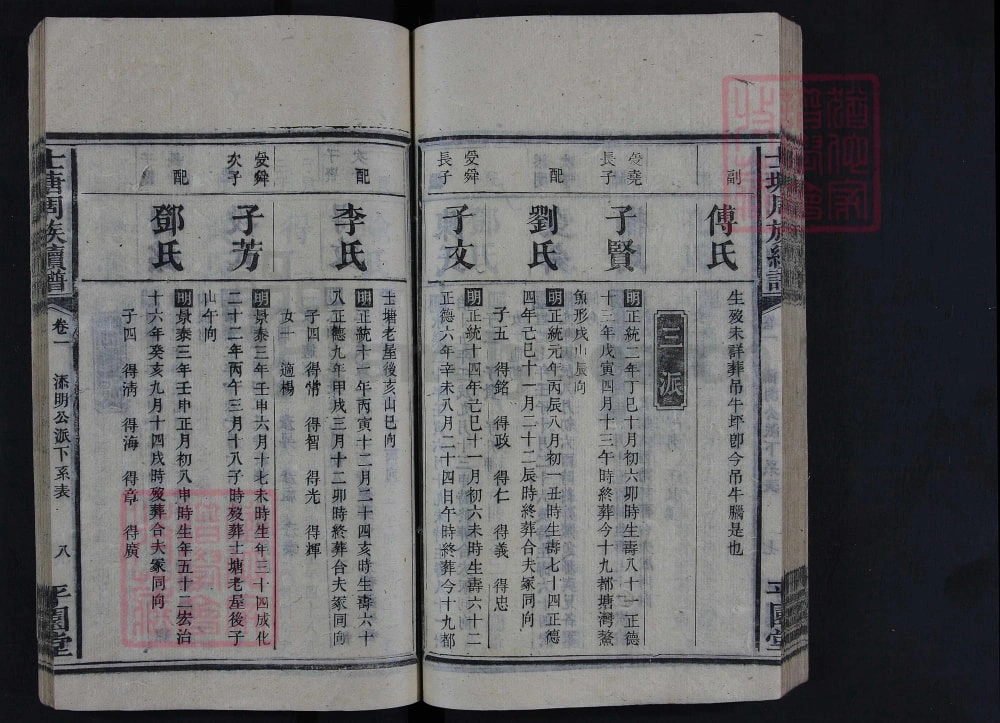 副
傅氏
生歿未詳葬吊牛坪卽今吊牛腦是也
三派
愛堯
長子
子賢
明正統二年丁巳十月初六卯時生壽八十一正德
十三年戊寅四月十三午時終葬今十九都塘灣鰲
魚形戌山辰向
配
劉氏
明正統元年丙辰八月初一丑時生壽七十四正德
四年己巳十一月二十二辰時終葬合夫冢同向
子五 得銘 得政 得仁 得義 得忠
愛舜
長子
子文
明正統十四年己巳十一月初六未時生壽六十二
正德六年辛未八月二十四日午時終葬今十九都
士塘老屋後亥山巳向
配
李氏
明正統十一年丙寅十二月二十四亥時生壽六十
八正德九年甲戌三月十二卯時終葬合夫冢同向
子四 得常 得智 得光 得輝
女一 適楊
愛舜
次子
子芳
明景泰三年壬申六月十七未時生年三十四成化
二十二年丙午三月十八子時歿葬士塘老屋後子
山午向
配
鄧氏
明景泰三年壬申正月初八申時生年五十二宏治
十六年癸亥九月十四戌時歿葬合夫冢同向
子四 得淸 得海 得章 得廣
士塘周族續譜
卷一
添明公派下系表
八
平園堂